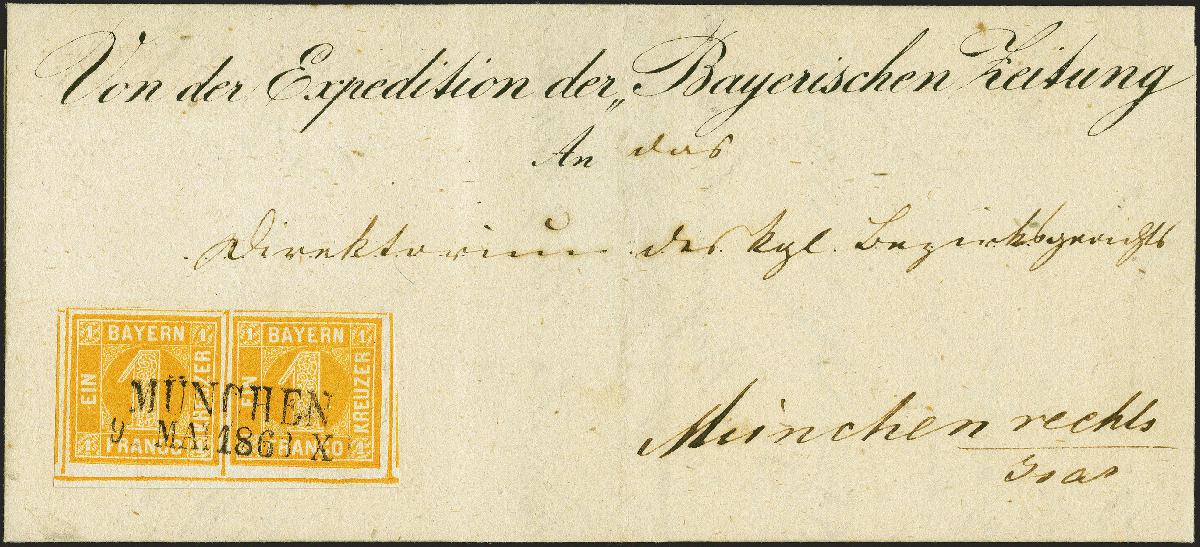 Von der Expedition der „Bayerischen Zeitung
An das
Direktorium des kgl. Bezirksgerichts
München rechts
Isar
1 BAYERN 1
EIN
1
KREUZER
1 FRANCO 1
1 BAYERN 1
EIN
1
KREUZER
FRANCO 1
MÜNCHEN
9 MAI 1863 X